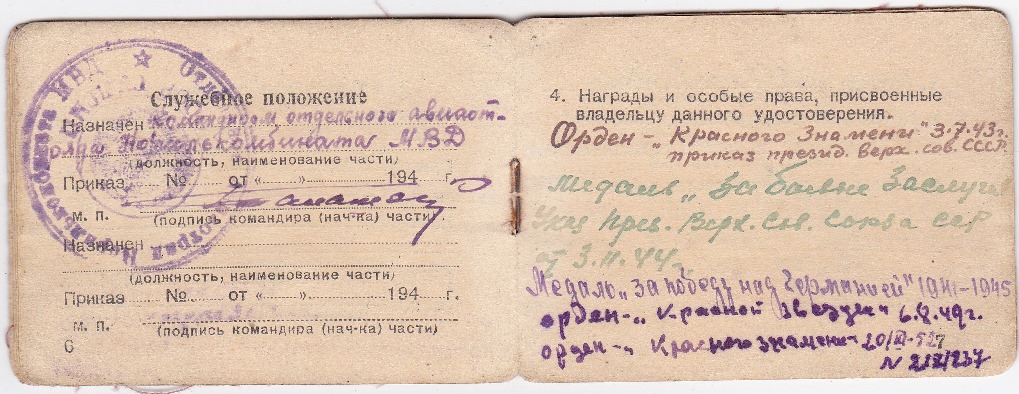 Служебное положение
Назначен Командиром отдельного авиаот-
ряда Норилькомбината МВД
(должность, наименование части)
Приказ № от «.....» 194 г.
м. п. (подпись командира (нач-ка) части)
Назначен
(должность, наименование части)
Приказ № от «.....» 194 г.
м. п. (подпись командира (нач-ка) части)
6
4. Награды и особые права, присвоенные
владельцу данного удостоверения.
Орден - „Красного Знамени" 3.7.43г.
приказ презид. Верх. сов. СССР
медаль „За боевые заслуги
Указ през. Верх. Сов. Союза ССР
от 3.11.44г.
Медаль „за победу над Германией" 1941-1945
орден - „Красной Звезды"
орден - „Красного знамени"
N 212/237
МВД
Отд